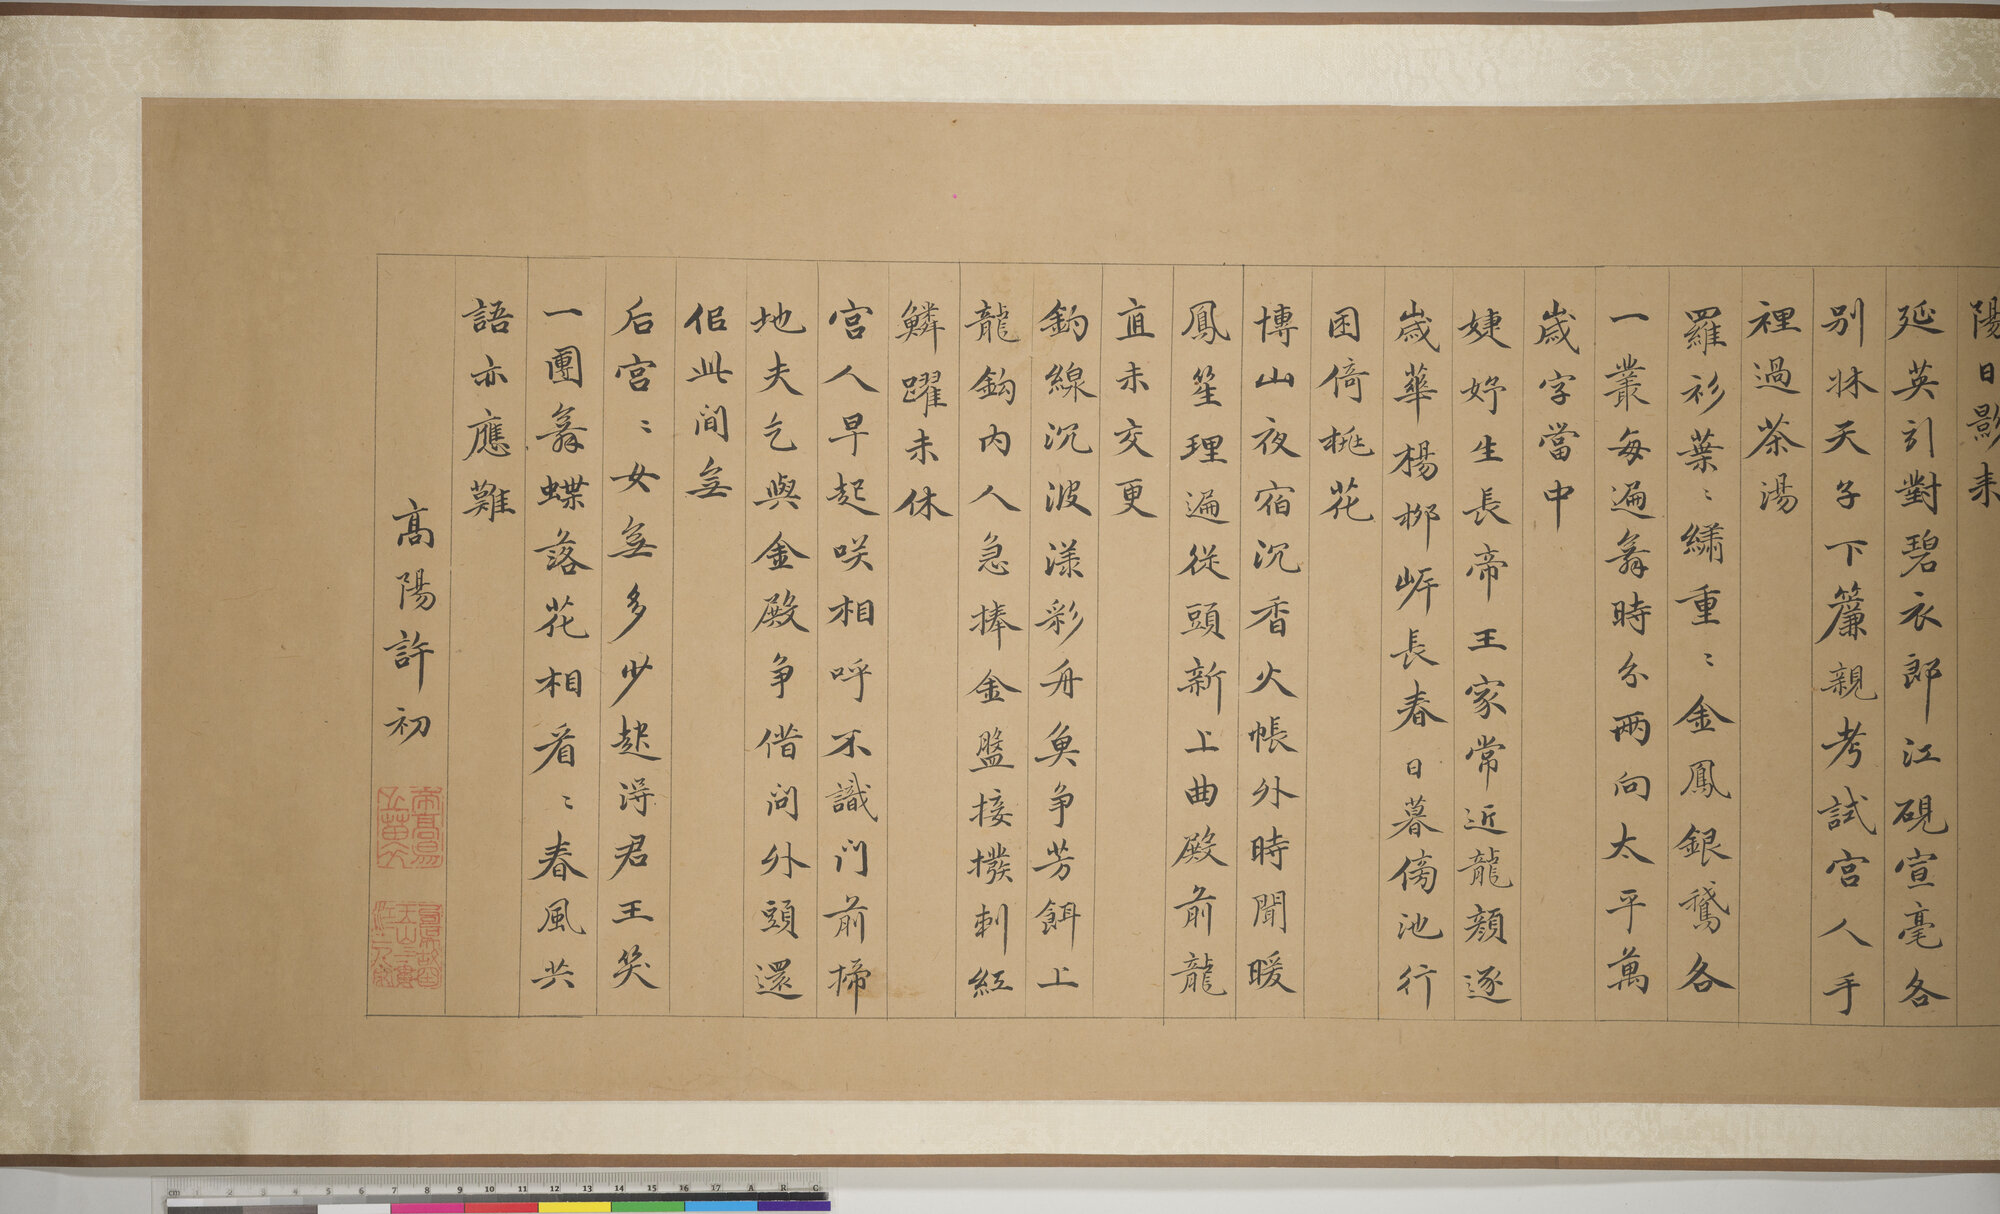 陽日影来
延英引對碧衣郎江硯宣毫各
别牀天子下簾親考試宫人手
裡過茶湯
羅衫葉〻繡重〻金鳳銀鵞各
一叢每遍舞時分兩向太平萬
歲字當中
婕妤生長帝王家常近龍顔逐
歲華楊柳岸長春日暮傍池行
困倚桃花
博山夜宿沉香火帳外時聞暖
鳳笙理遍從頭新上曲殿前龍
直未交更
釣線沉波漾彩舟魚争芳餌上
龍鈎内人急捧金盤接撥剌紅
鱗躍未休
宫人早起咲相呼不識門前掃
地夫乞與金殿争借問外頭還
似此間無
后宫〻女無多少趂得君王笑
一團舞蝶落花相看〻春風共
語亦應難
髙陽許初